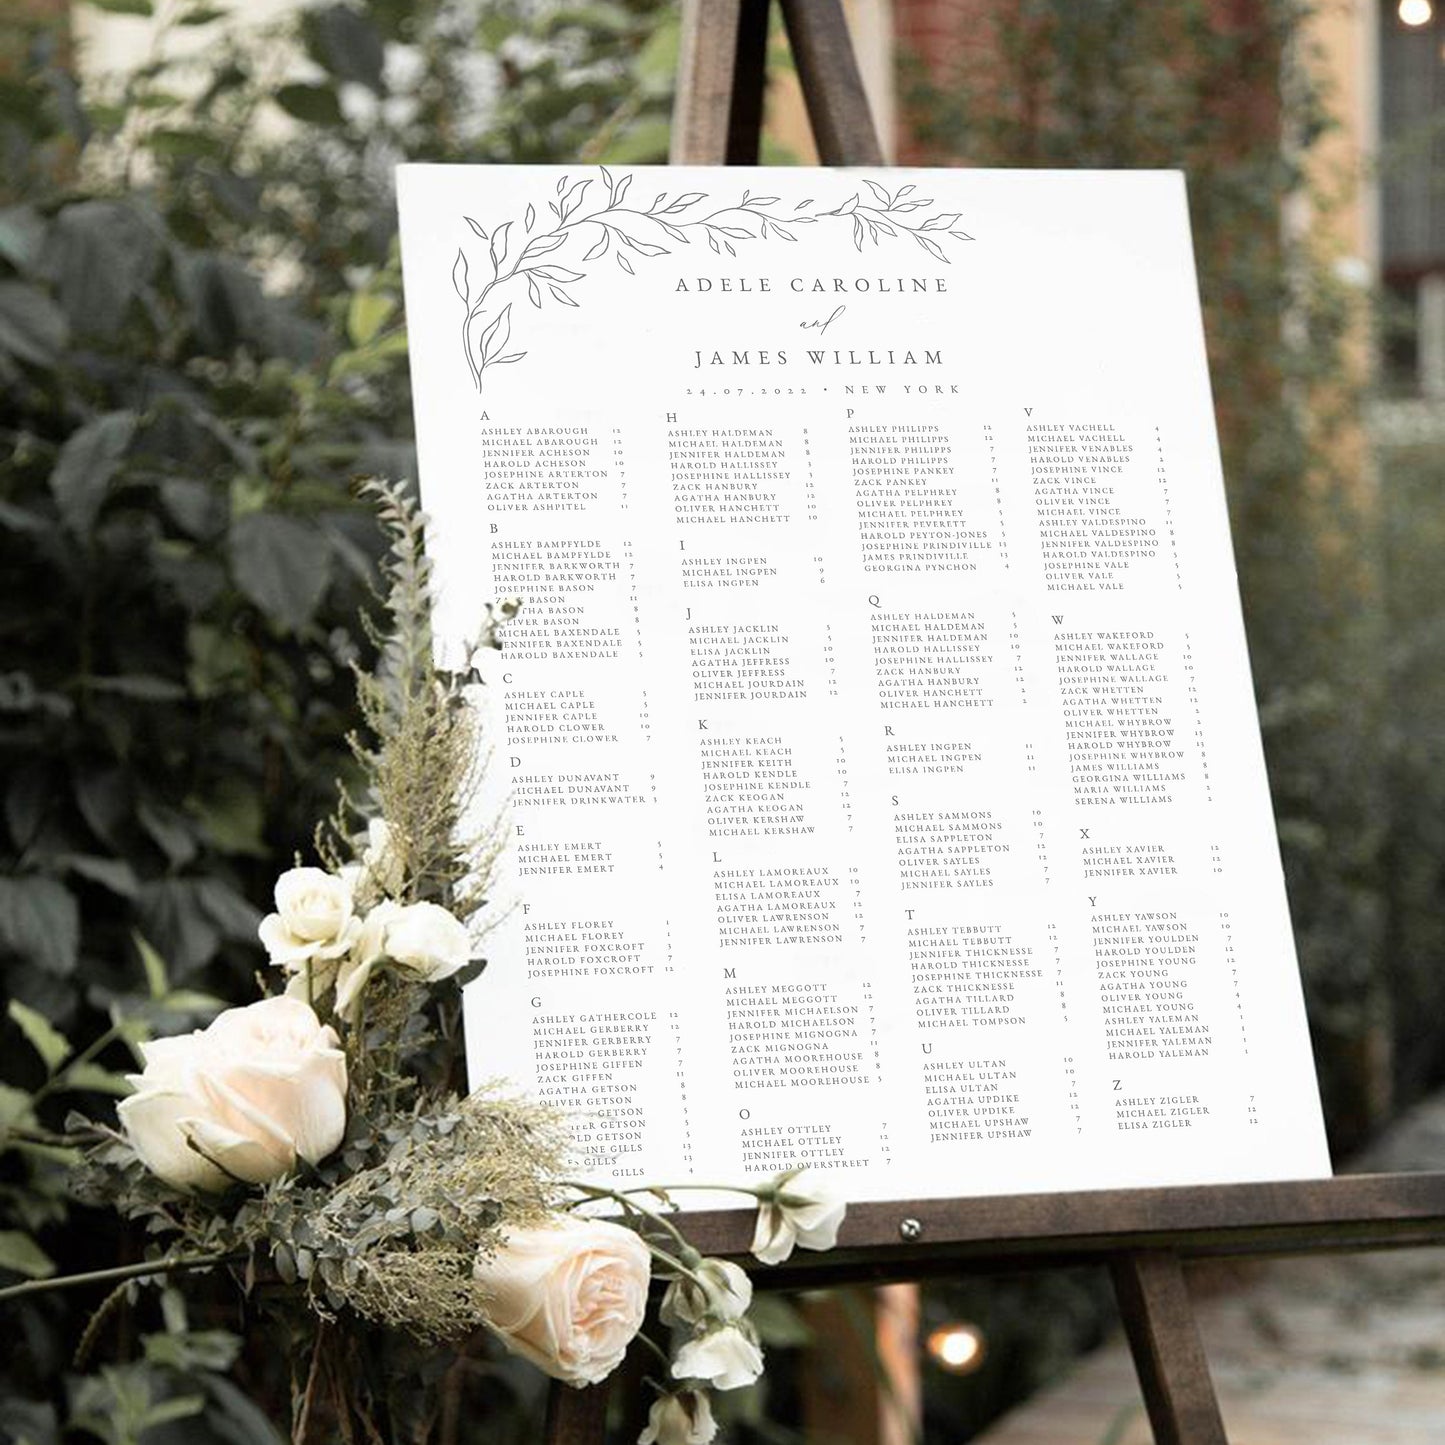 ADELE CAROLINE
and
JAMES WILLIAM
24.07.2022 • NEW YORK
A
ASHLEY ABAROUGH 12
MICHAEL ABAROUGH 12
JENNIFER ACHESON 10
HAROLD ACHESON 10
JOSEPHINE ARTERTON 7
ZACK ARTERTON 7
AGATHA ARTERTON 7
OLIVER ASHPITEL 11
B
ASHLEY BAMPFYLDE 12
MICHAEL BAMPFYLDE 12
JENNIFER BARKWORTH 7
HAROLD BARKWORTH 7
JOSEPHINE BASON 7
BASON 11
BASON 8
BASON 8
MICHAEL BAXENDALE 5
JENNIFER BAXENDALE 5
HAROLD BAXENDALE 5
C
ASHLEY CAPLE 5
MICHAEL CAPLE 5
JENNIFER CAPLE 10
HAROLD CLOWER 10
JOSEPHINE CLOWER 7
D
ASHLEY DUNAVANT 9
MICHAEL DUNAVANT 9
JENNIFER DRINKWATER 3
E
ASHLEY EMERT 5
MICHAEL EMERT 5
JENNIFER EMERT 4
F
ASHLEY FLOREY 1
MICHAEL FLOREY 1
JENNIFER FOXCROFT 3
HAROLD FOXCROFT 7
JOSEPHINE FOXCROFT 12
G
ASHLEY GATHERCOLE 12
MICHAEL GERBERRY 12
JENNIFER GERBERRY 7
HAROLD GERBERRY 7
JOSEPHINE GIFFEN 7
ZACK GIFFEN 11
AGATHA GETSON 8
OLIVER GETSON 8
GETSON 5
GETSON 5
GETSON 5
GILLS 13
GILLS 13
GILLS 4
H
ASHLEY HALDEMAN 8
MICHAEL HALDEMAN 8
JENNIFER HALDEMAN 8
HAROLD HALLISSEY 3
JOSEPHINE HALLISSEY 3
ZACK HANBURY 12
AGATHA HANBURY 12
OLIVER HANCHETT 10
MICHAEL HANCHETT 10
I
ASHLEY INGPEN 10
MICHAEL INGPEN 9
ELISA INGPEN 6
J
ASHLEY JACKLIN 5
MICHAEL JACKLIN 5
ELISA JACKLIN 10
AGATHA JEFFRESS 10
OLIVER JEFFRESS 7
MICHAEL JOURDAIN 12
JENNIFER JOURDAIN 12
K
ASHLEY KEACH 5
MICHAEL KEACH 5
JENNIFER KEITH 10
HAROLD KENDLE 10
JOSEPHINE KENDLE 7
ZACK KEOGAN 12
AGATHA KEOGAN 12
OLIVER KERSHAW 7
MICHAEL KERSHAW 7
L
ASHLEY LAMOREAUX 10
MICHAEL LAMOREAUX 10
ELISA LAMOREAUX 7
AGATHA LAMOREAUX 12
OLIVER LAWRENSON 12
MICHAEL LAWRENSON 7
JENNIFER LAWRENSON 7
M
ASHLEY MEGGOTT 12
MICHAEL MEGGOTT 12
JENNIFER MICHAELSON 7
HAROLD MICHAELSON 7
JOSEPHINE MIGNOGNA 7
ZACK MIGNOGNA 11
AGATHA MOOREHOUSE 8
OLIVER MOOREHOUSE 8
MICHAEL MOOREHOUSE 5
O
ASHLEY OTTLEY 7
MICHAEL OTTLEY 12
JENNIFER OTTLEY 12
HAROLD OVERSTREET 7
P
ASHLEY PHILIPPS 12
MICHAEL PHILIPPS 12
JENNIFER PHILIPPS 7
HAROLD PHILIPPS 7
JOSEPHINE PANKEY 7
ZACK PANKEY 11
AGATHA PELPHREY 8
OLIVER PELPHREY 8
MICHAEL PELPHREY 5
JENNIFER PEVERETT 5
HAROLD PEYTON-JONES 5
JOSEPHINE PRINDIVILLE 13
JAMES PRINDIVILLE 13
GEORGINA PYNCHON 4
Q
ASHLEY HALDEMAN 5
MICHAEL HALDEMAN 5
JENNIFER HALDEMAN 10
HAROLD HALLISSEY 10
JOSEPHINE HALLISSEY 7
ZACK HANBURY 12
AGATHA HANBURY 12
OLIVER HANCHETT 2
MICHAEL HANCHETT 2
R
ASHLEY INGPEN 11
MICHAEL INGPEN 11
ELISA INGPEN 11
S
ASHLEY SAMMONS 10
MICHAEL SAMMONS 10
ELISA SAPPLETON 7
AGATHA SAPPLETON 12
OLIVER SAYLES 12
MICHAEL SAYLES 7
JENNIFER SAYLES 7
T
ASHLEY TEBBUTT 12
MICHAEL TEBBUTT 12
JENNIFER THICKNESSE 7
HAROLD THICKNESSE 7
JOSEPHINE THICKNESSE 7
ZACK THICKNESSE 11
AGATHA TILLARD 8
OLIVER TILLARD 8
MICHAEL TOMPSON 5
U
ASHLEY ULTAN 10
MICHAEL ULTAN 10
ELISA ULTAN 7
AGATHA UPDIKE 12
OLIVER UPDIKE 12
MICHAEL UPSHAW 7
JENNIFER UPSHAW 7
V
ASHLEY VACHELL 4
MICHAEL VACHELL 4
JENNIFER VENABLES 4
HAROLD VENABLES 2
JOSEPHINE VINCE 12
ZACK VINCE 12
AGATHA VINCE 7
OLIVER VINCE 7
MICHAEL VINCE 7
ASHLEY VALDESPINO 11
MICHAEL VALDESPINO 8
JENNIFER VALDESPINO 8
HAROLD VALDESPINO 5
JOSEPHINE VALE 5
OLIVER VALE 5
MICHAEL VALE 5
W
ASHLEY WAKEFORD 5
MICHAEL WAKEFORD 5
JENNIFER WALLAGE 10
HAROLD WALLAGE 10
JOSEPHINE WALLAGE 7
ZACK WHETTEN 12
AGATHA WHETTEN 12
OLIVER WHETTEN 2
MICHAEL WHYBROW 2
JENNIFER WHYBROW 13
HAROLD WHYBROW 13
JOSEPHINE WHYBROW 8
JAMES WILLIAMS 8
GEORGINA WILLIAMS 8
MARIA WILLIAMS 2
SERENA WILLIAMS 2
X
ASHLEY XAVIER 12
MICHAEL XAVIER 12
JENNIFER XAVIER 10
Y
ASHLEY YAWSON 10
MICHAEL YAWSON 10
JENNIFER YOULDEN 7
HAROLD YOULDEN 12
JOSEPHINE YOUNG 12
ZACK YOUNG 7
AGATHA YOUNG 7
OLIVER YOUNG 4
MICHAEL YOUNG 4
ASHLEY YALEMAN 1
MICHAEL YALEMAN 1
JENNIFER YALEMAN 1
HAROLD YALEMAN 1
Z
ASHLEY ZIGLER 7
MICHAEL ZIGLER 12
ELISA ZIGLER 12